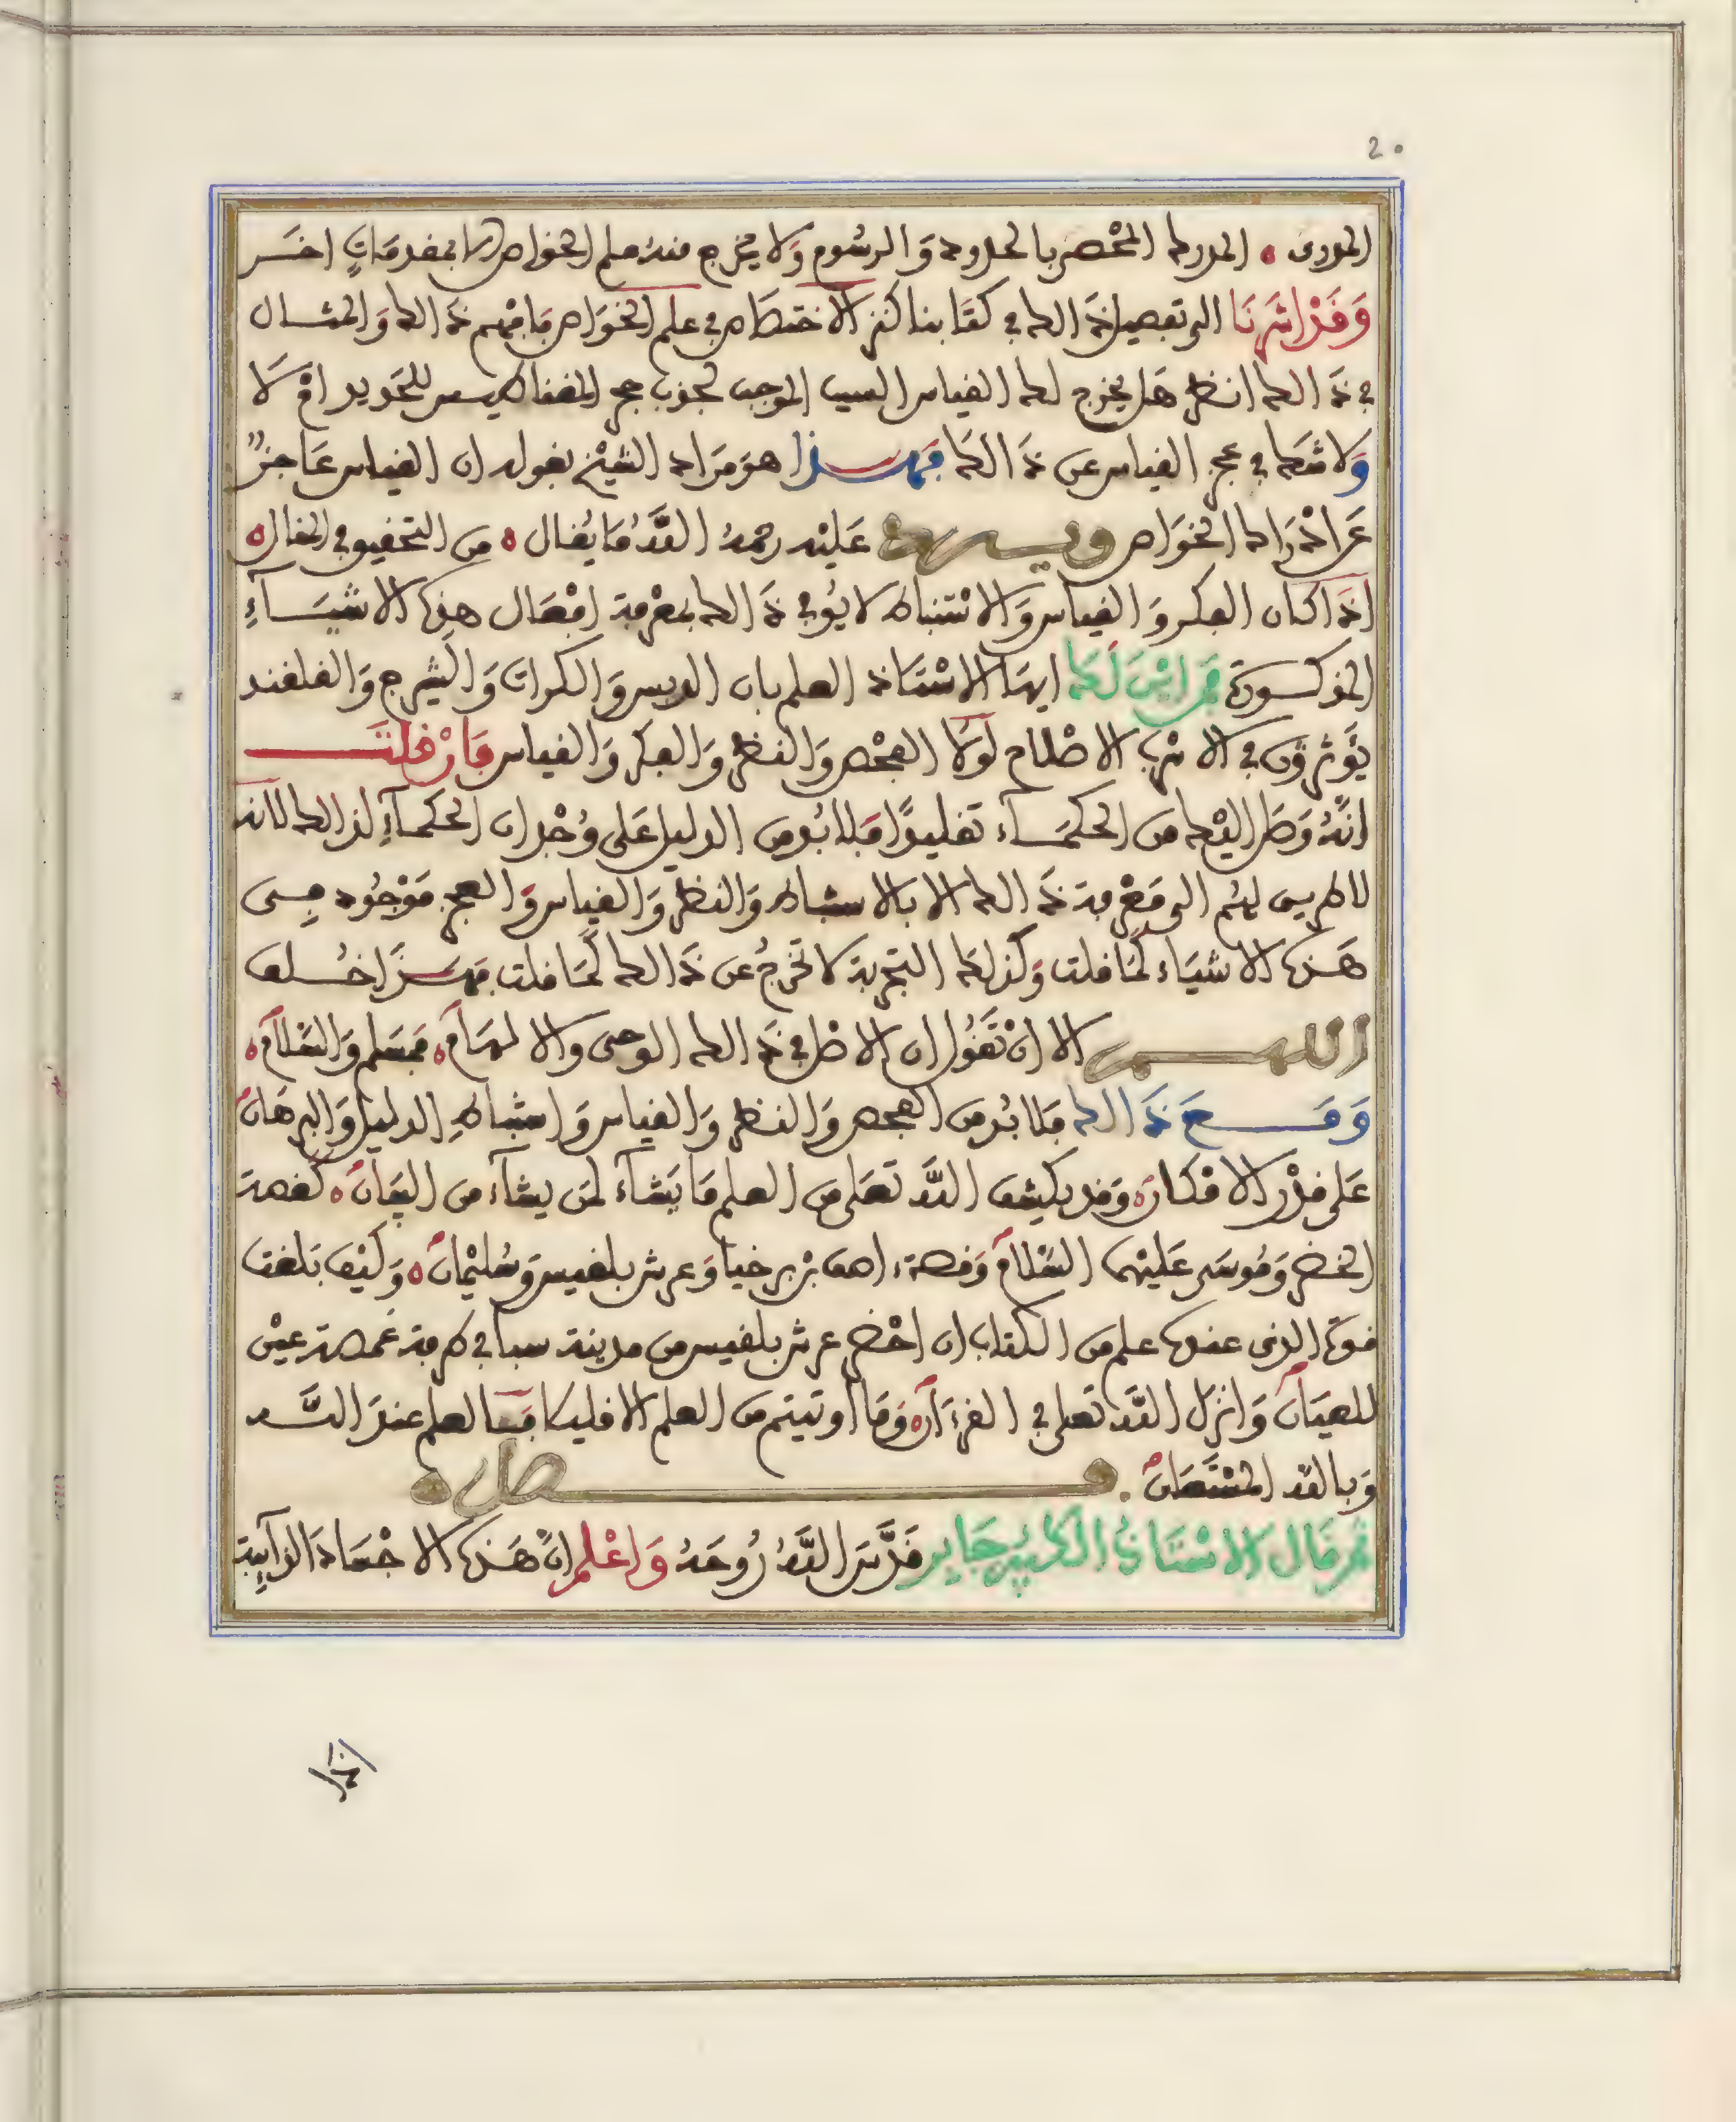 20
المدرى ه المدرك المحصر بالحدود وَالرسُوم وَلا يخرج منه علم الخواص الا بمقدمَاتٍ اخَـر
وَقَدْ اشَرنَا الى تفصيل ذَالك في كتَابنا كنز الاختصَاص في علم الخوَاص فافهم ذَالك وَالمثـال
في ذَالك انظر هَل يخرج لك القياس السبب الموجب لجذب حجر المغناطيس للحَديد امْ لَا
وَلا شك في عجز القياس عن ذَالكَ فهـذا هوَ مرَاد الشيْخ بقوله ان القياس عَاجزٌ
عَن ادْرَاك الخوَاص ويـرد عَليْه رحمهُ اللَّه مَا يُقال ه من التحقيق في الحال ه
اذَا كان الفكر وَالقياس وَالاسْتنباط لا يُوفي ذَالك بمعْرفة افْعَال هذه الاشيَـآءِ
المذكـورة فمن ايْنَ لَكَ ايهَا الاسْتَاذ العلم بان الدبس وَالكراث وَالشيرج وَالقلقند
يؤَثرُون في الاسْرب الاصْلاح لوْلَا الفحْص وَالنظر وَالفكر وَالقياس فَانْ قلتَ
انَّهُ وَصَل اليْك من الحكمَـآء تقليدًا فَلا بُد من الدليل على وُجْدان الحكمآءِ لذالك لانه
لا طريق لهُم الى مَعْرفة ذَالك الا بالاستنباط وَالنظر وَالقياس وَالعجز مَوْجُود فـى
هَـذه الاشيَاء كمَا قلت وَكذلك التجربة لا تخرجُ عن ذَالك كمَا قلت فهـذَا خُـلف
اللهـم الا انْ تَقُول ان الاصْل في ذَالك الوحى والالهَامْ ه فمسَلم وَالسَّلَامْ ه
وَمَـعَ ذَالك فَلا بُد من الفحص وَالنظر وَالقياس وَاستنباطِ الدليل وَالبرهَانْ
عَلى قدْر الامْكَانْ ه وَقد يكشف اللَّه تعَلى من العلم مَا يَشَآءُ لمن يشآء من البيَانْ ه كقصة
الخضر وَمُوسَى عَليْهما السَّلَامْ وَقصة ءاصف بْن برخيا وَعرش بلقيس وَسُليْمانْ ه وَكيْف بَلغت
قوة الذى عنده علم من الكتاب ان احْضر عرش بلقيس من مدينة سبا في طرفة غمضة عيْن
للعيَانْ وَانزلَ اللَّه تعلى في القرءَانْ ه وَمَا أوتيتم من العلم الا قليلا فمَـا العلم عندَ اللَّـه
وَباللَّه المسْتعَانْ . فـصل ه
ثم قال الاسْتَاذُ الكبير جَابر قدَّسَ اللَّهُ رُوحَهُ وَاعْلم انَّ هَذه الاجْسَادَ الذآئِبة